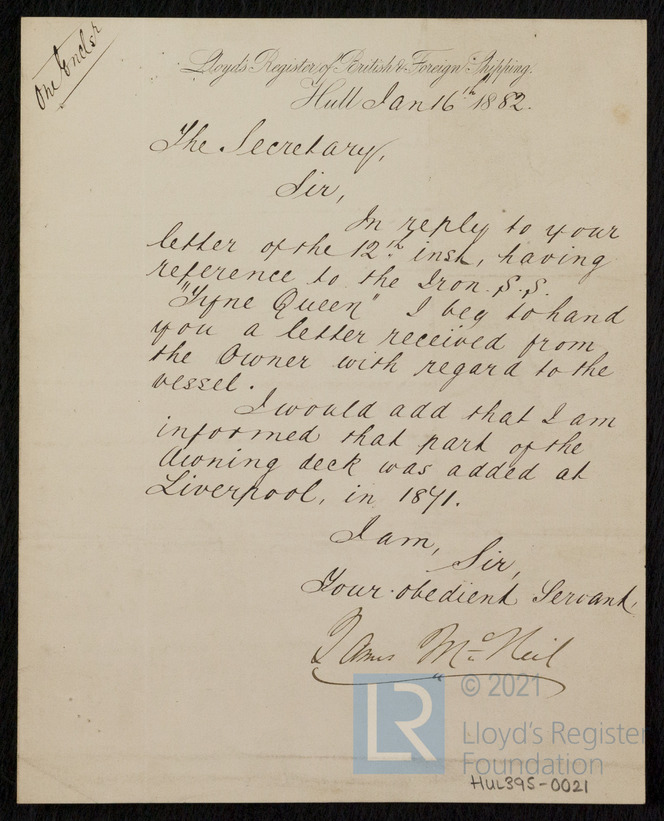 One Enclsr
Lloyd's Register of British & Foreign Shipping.
Hull Jan 16th 1882.
The Secretary,
Sir,
In reply to your
letter of the 12th inst, having
reference to the Iron S.S.
"Tyne Queen" I beg to hand
you a letter received from
the Owner with regard to the
vessel.
I would add that I am
informed that part of the
Awning deck was added at
Liverpool, in 1871.
I am,
Sir,
Your obedient Servant,
James McNeil
LR
© 2021
Lloyd's Register
Foundation
HUL395-0021